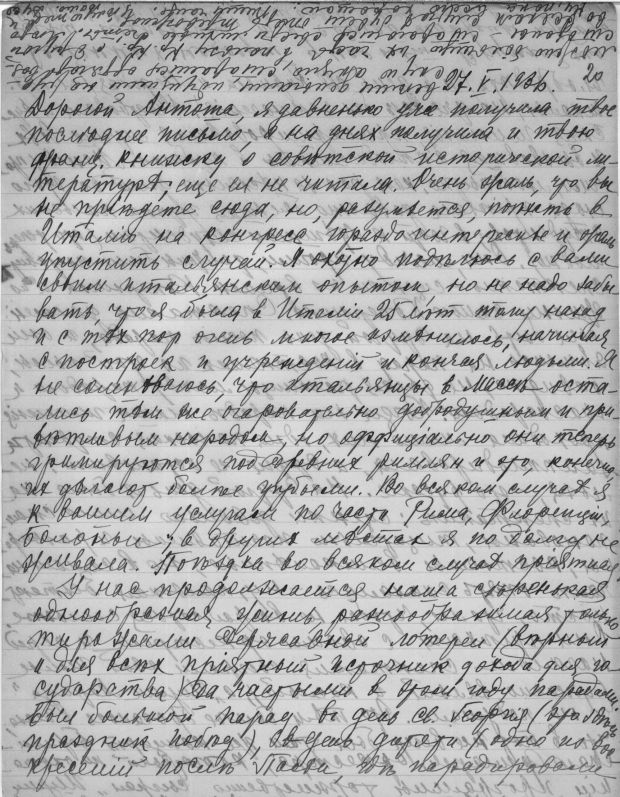 27. V. 1936.
Дорогой Антоша, я давненько уже получила твое
последнее письмо, а на днях получила и твою
франц. книжку о советской исторической ли-
тературѣ; еще ея не читала. Очень жаль, что вы
не пріѣдете сюда, но, разумѣется, попасть в
Италію на конгресс гораздо интереснѣе и жаль
упустить случай. Я охотно подѣлюсь с вами
своим итальянским опытом, но не надо забы-
вать, что я была в Италіи 25 лѣт тому назад
и с тѣх пор очень многое измѣнилось, начиная
с построек и учрежденій и кончая людьми. Я
не сомнѣваюсь, что итальянцы в массѣ оста-
лись тѣм же очаровательно добродушным и при-
вѣтливым народом, но оффиціально они теперь
гримируются под древних римлян и это, конечно,
их дѣлает болѣе грубыми. Во всяком случаѣ я
к вашим услугам по части Рима, Флоренціи,
Болоньи; в других мѣстах я по долгу не
живала. Поѣздка во всяком случаѣ пріятная.
У нас продолжается наша старенькая
однообразная жизнь, разнообразимая только
тиражами Державной лотереи (вѣрный
и для всѣх пріятный источник дохода для го-
сударства) да частыми в этом году парадами.
Был большой парад в день св. Георгія (это здѣсь
праздник побѣд), в день дѣтяти (одно из вос-
кресеній послѣ Пасхи, гдѣ парадировали